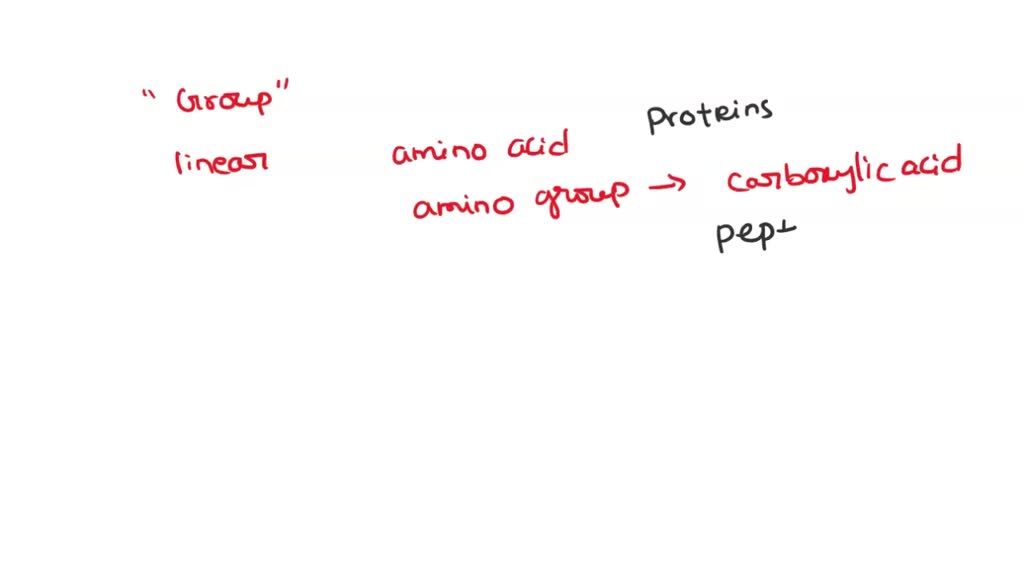 "Group"
Proteins
linear amino acid
amino group → carboxylic acid
pept